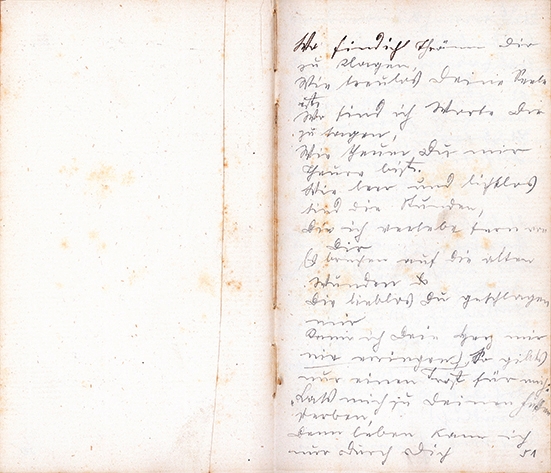 Wo find ich Thränen Dir
zu klagen,
Wie treulos Deine Seele
ist,
Wo find ich Worte Dir
zu sagen,
Wie theuer Du mir
Theure bist.
Wie leer und lichtlos
sind die Stunden,
Die ich verlebe fern von
Dir
Es brennen auf die alten
Wunden
Die lieblos Du geschlagen
mir
Kann ich Dein Herz mir
nie erringen, So gibts
nur einen Trost für mich:
Laß mich zu Deinen Füßen
sterben,
Denn leben kann ich
nur durch Dich
51